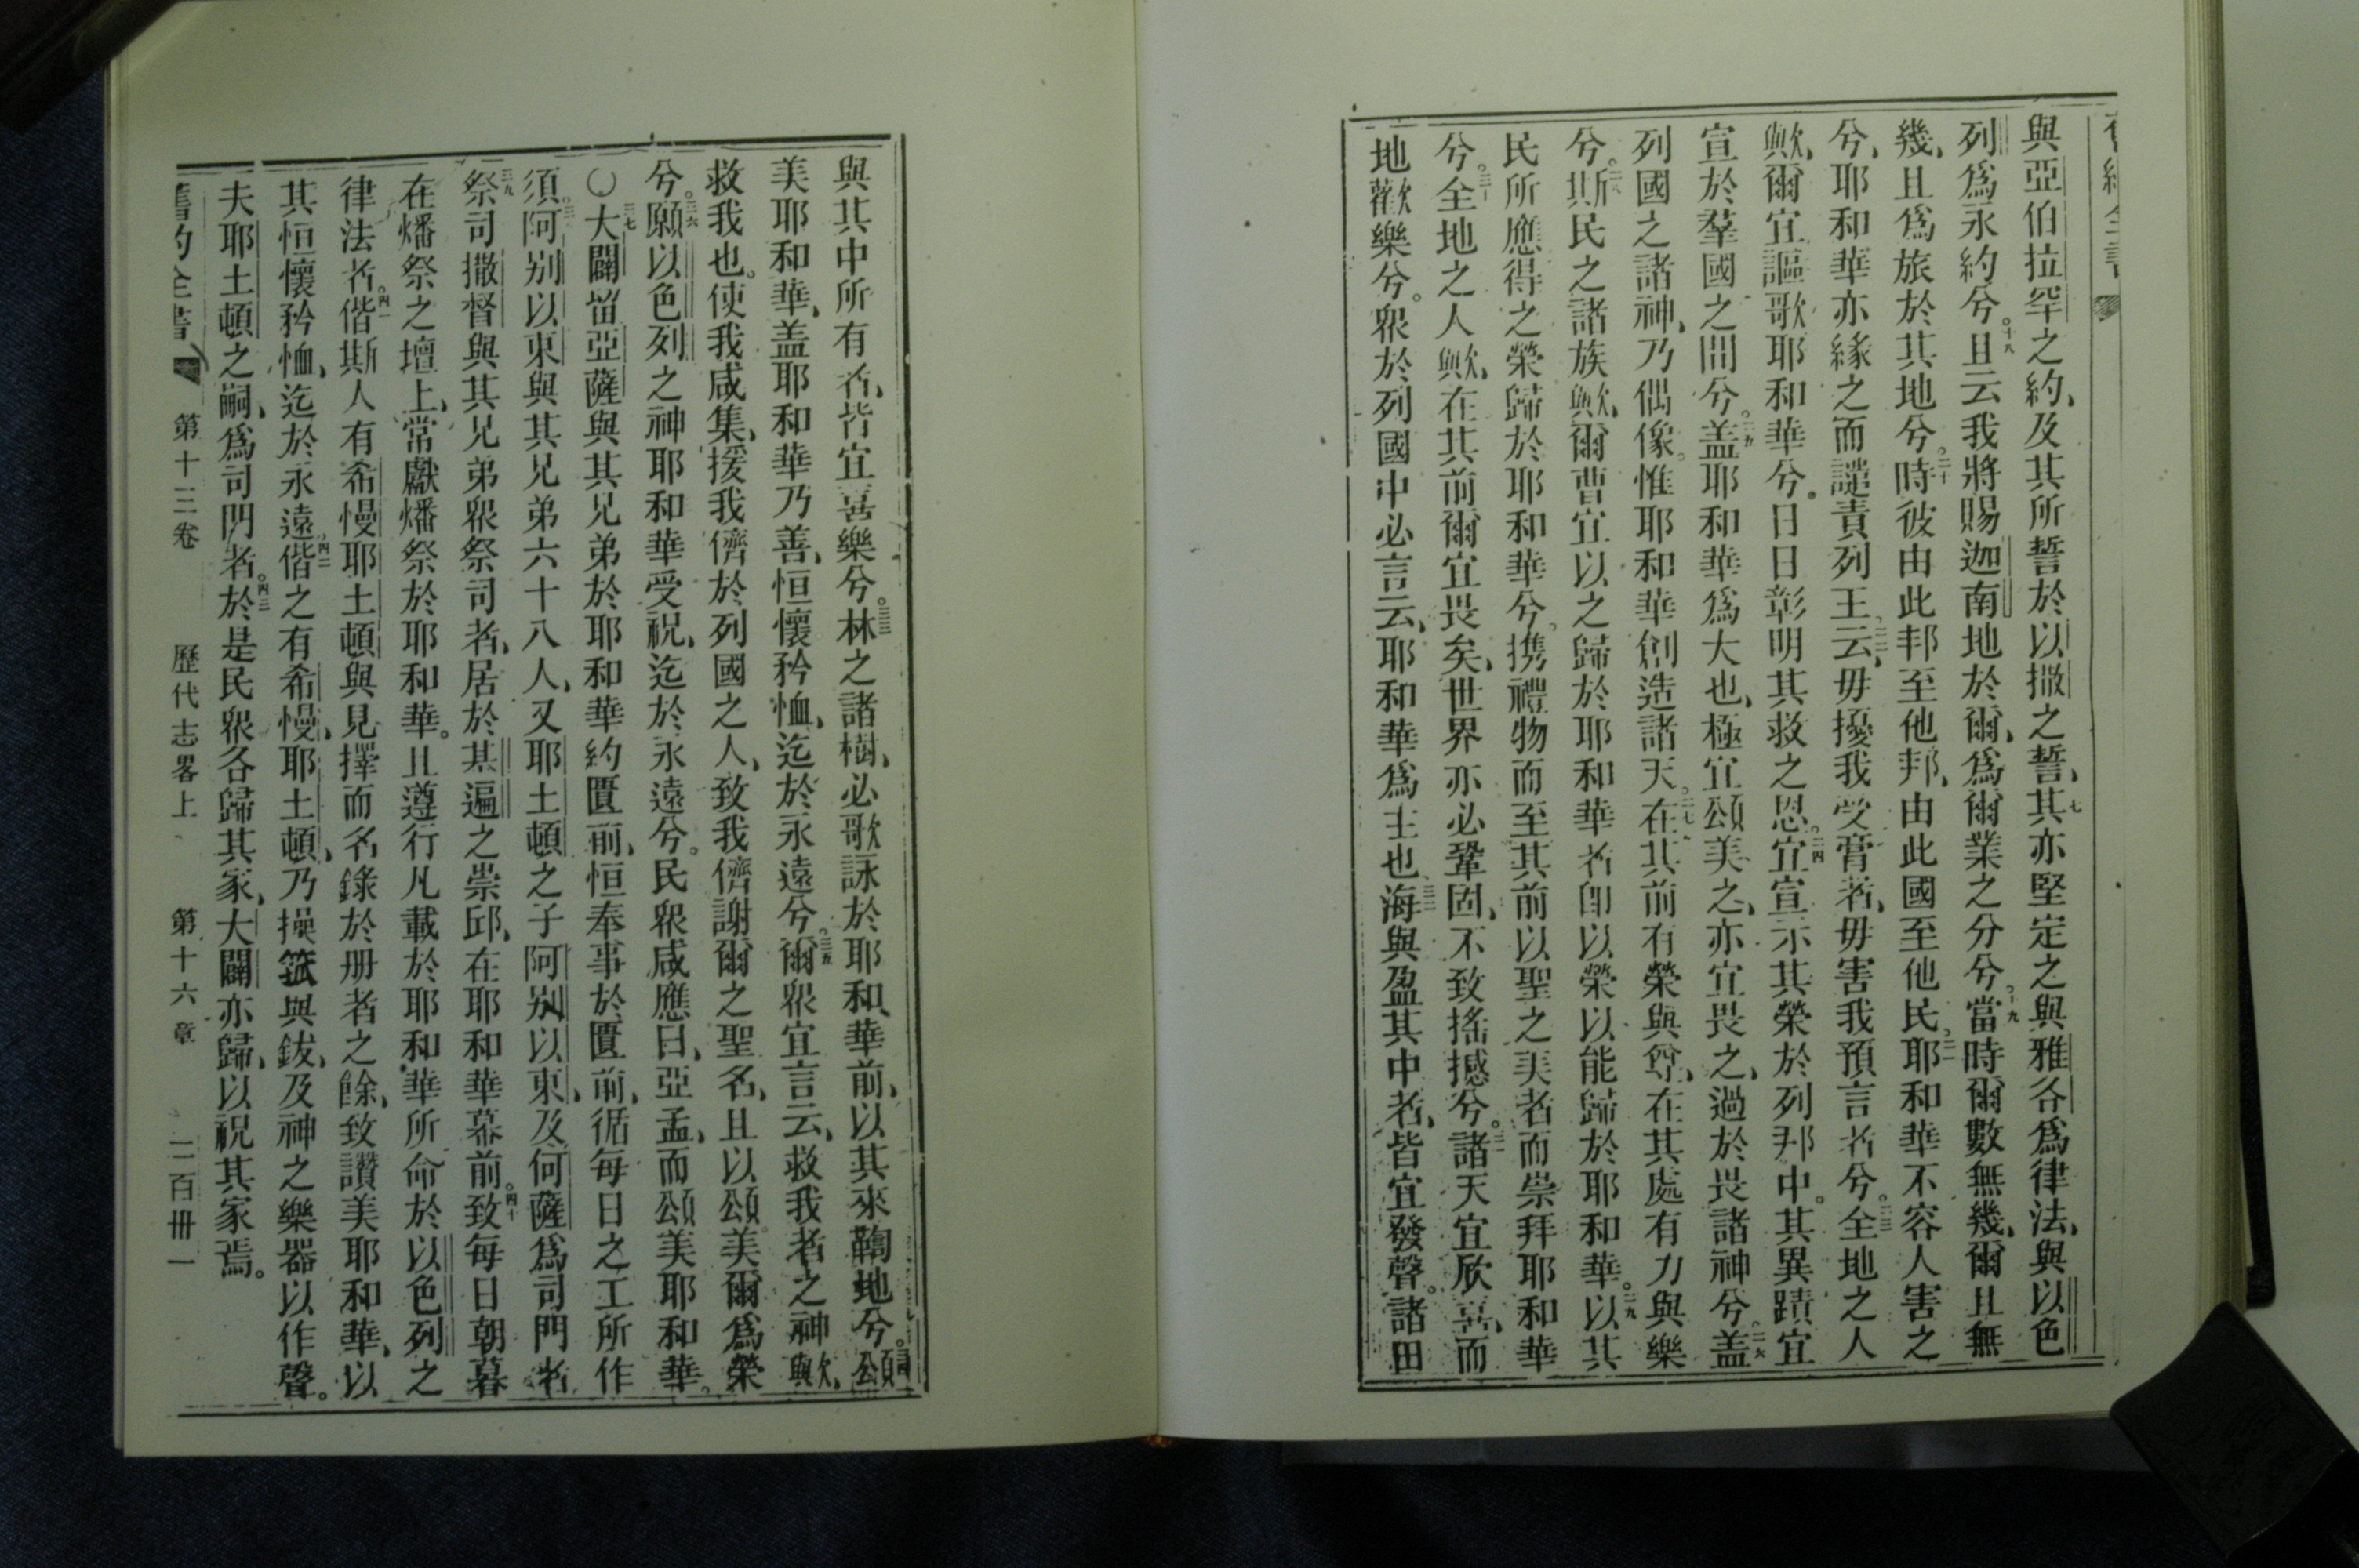 與亞伯拉罕之約、及其所誓於以撒之誓、七其亦堅定之與雅各爲律法、與以色
列爲永約兮。十八且云我將賜迦南地於爾、爲爾業之分兮。十九當時爾數無幾、爾且無
幾、且爲旅於其地兮。二十時彼由此邦至他邦、由此國至他民。二一耶和華不容人害之
兮、耶和華亦緣之而譴責列王。二二云、毋擾我受膏者、毋害我預言者兮。二三全地之人
歟、爾宜謳歌耶和華兮。日日彰明其救之恩。二四宜宣示其榮於列邦中。其異蹟宜
宣於羣國之間兮。二五盖耶和華爲大也、極宜頌美之、亦宜畏之、過於畏諸神兮。二六盖
列國之諸神、乃偶像。惟耶和華創造諸天。二七在其前有榮與尊、在其處有力與樂
兮。二八斯民之諸族歟、爾曹宜以之歸於耶和華者卽以榮以能歸於耶和華。二九以其
民所應得之榮歸於耶和華兮。携禮物而至其前以聖之美者而崇拜耶和華
兮。三十全地之人歟、在其前爾宜畏矣、世界亦必鞏固、不致搖撼兮。三一諸天宜欣喜、而
地歡樂兮。衆於列國中必言云、耶和華爲主也三二海與盈其中者、皆宜發聲。諸田
與其中所有者、皆宜喜樂兮。三三林之諸樹、必歌詠於耶和華前、以其來鞫地兮。頌
美耶和華、盖耶和華乃善、恒懷矜恤、迄於永遠兮。三五爾衆宜言云、救我者之神歟、
救我也。使我咸集、援我儕於列國之人、致我儕謝爾之聖名、且以頌美爾爲榮
兮。三六願以色列之神耶和華受祝、迄於永遠兮。民衆咸應曰、亞孟、而頌美耶和華。
〇三七大闢留亞薩與其兄弟於耶和華約匱前、恒奉事於匱前、循每日之工所作
須。阿別以東與其兄弟六十八人、又耶土頓之子阿別以東、及何薩爲司門者
三九祭司撒督與其兄弟衆祭司者、居於基遍之崇邱、在耶和華幕前。四十致每日朝暮
在燔祭之壇上、常獻燔祭於耶和華。且遵行凡載於耶和華所命於以色列之
律法者。四一偕斯人有希慢耶土頓與見擇而名錄於册者之餘、致讚美耶和華、以
其恒懷矜恤、迄於永遠。四二偕之有希慢、耶土頓、乃操箛與鈸、及神之樂器以作聲。
夫耶土頓之嗣、爲司門者。四三於是民衆各歸其家、大闢亦歸、以祝其家焉。
舊約全書 第十三卷 歷代志畧上 第十六章 二百卌一